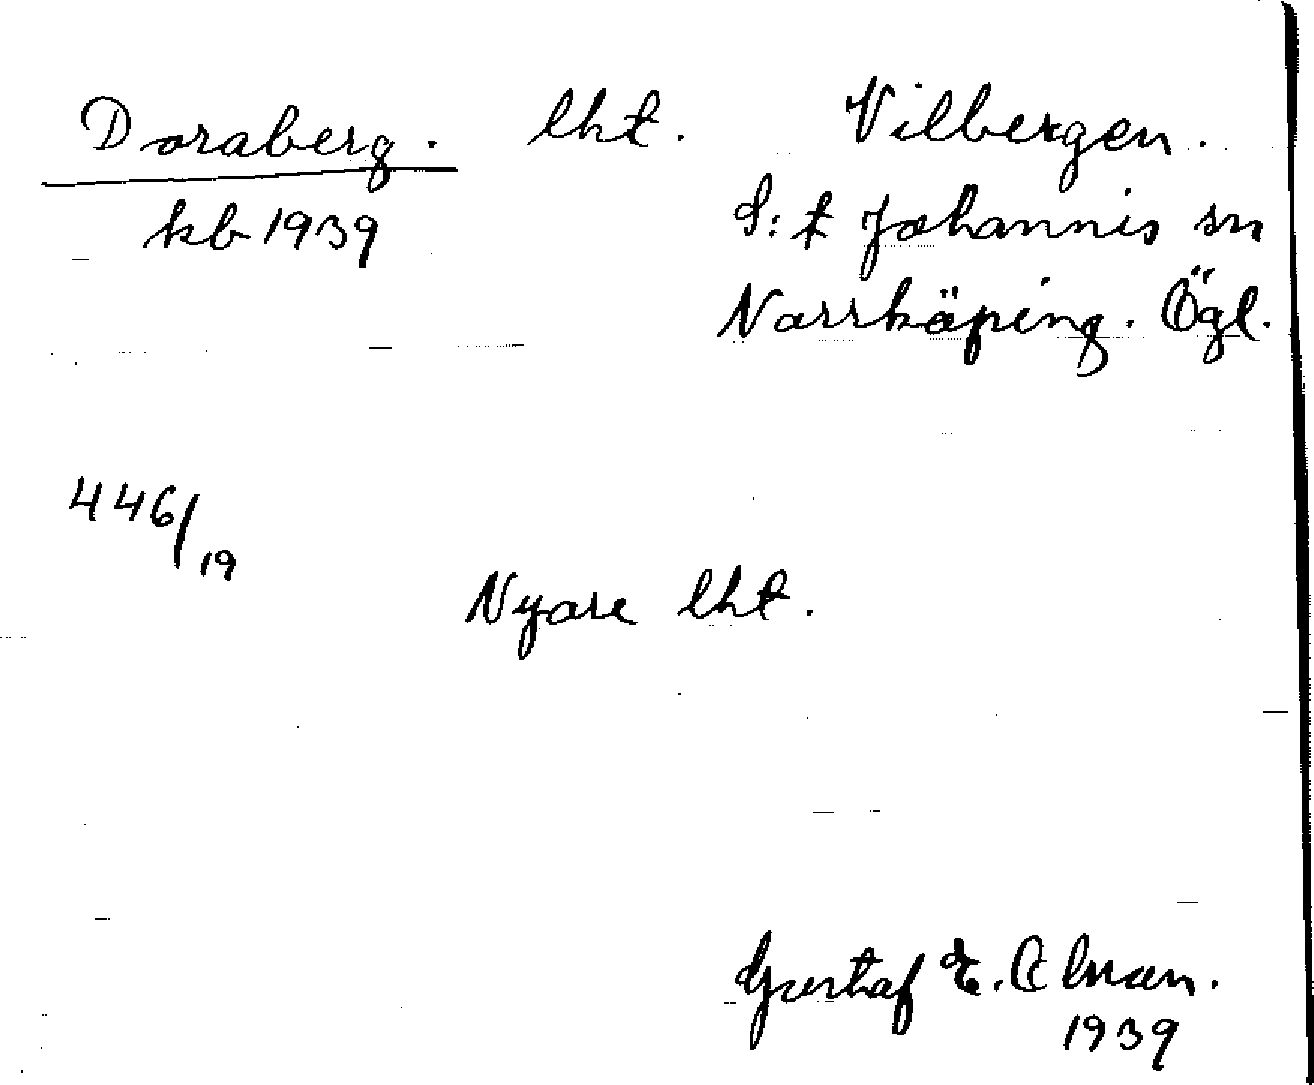 Doraberg. lht. Vilbergen.
kb 1939 S:t Johannis sn
Norrköping. Ögl.
446/19
Nyare lht.
Gustaf E. Alman.
1939